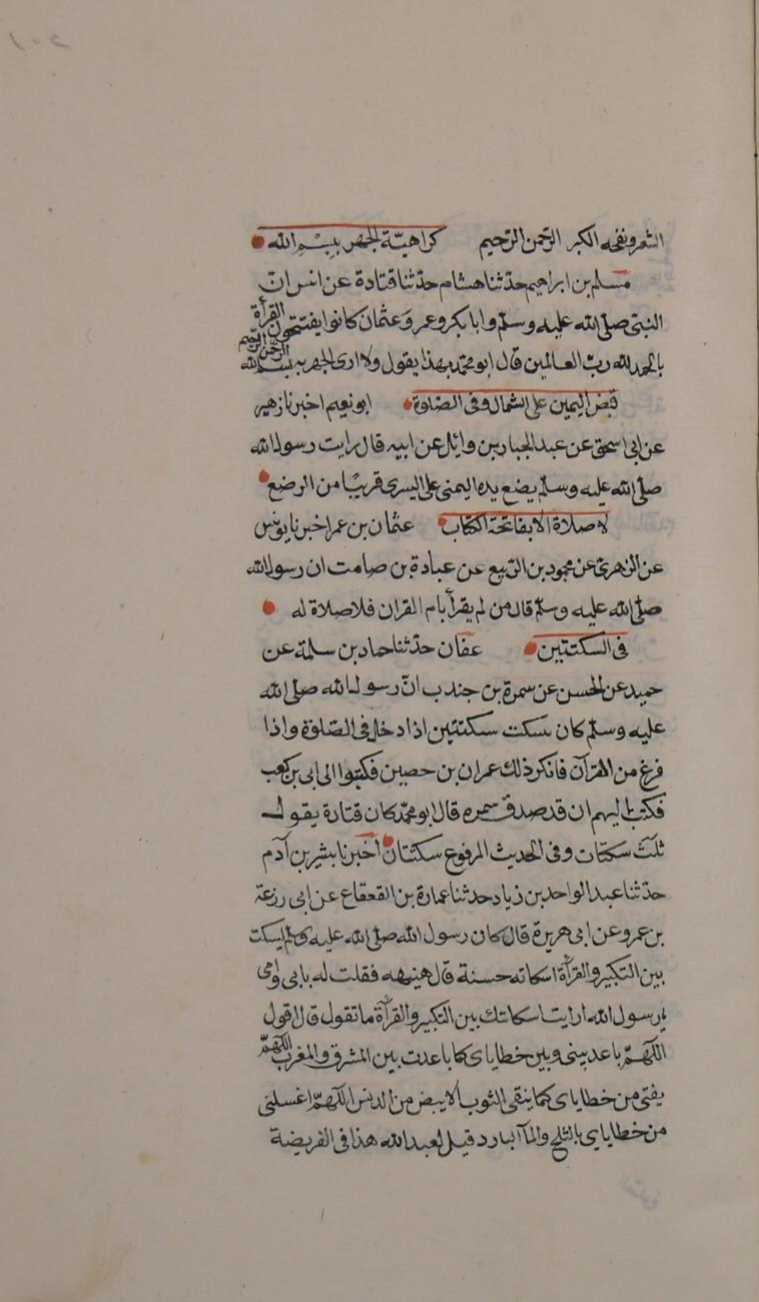 الشعر ونفخه الكبر الرحمن الرحيم كراهيّة الجهر ببِسْمِ الله
مسلم بن ابراهيم حدّثنا هشام حدّثنا قتادة عن انس انّ
النبّى صلّى الله عليه وسلّم وابا بكر وعمر وعثمان كانوا يفتتحون القرأة
بالحمد لله ربّ العالمين قال ابو محمّد بهذا يقول ولا ارى الجهر به بسم الله الرحمن الرحيم
قبض اليمين على الشمال وفى الصّلوة ابو نعيم اخبرنا زهير
عن ابى اسحق عن عبد الجبار بن وائل عن ابيه قال رايت رسول الله
صلّى الله عليه وسلّم يضع يده اليمنى على اليسرى قريبًا من الرضغ
لا صلاة الا بفاتحة الكتاب عثمان بن عمر اخبرنا يونس
عن الزهرى عن محمود بن الرّبيع عن عبادة بن صامت ان رسول الله
صلّى الله عليه وسلّم قال من لم يقرأ بام القران فلا صلاة له
فى السكتتين عفان حدّثنا حماد بن سلمة عن
حميد عن الحسن عن سمرة بن جندب انّ رسول الله صلّى الله
عليه وسلّم كان يسكت سكتتين اذا دخل فى الصّلوة واذا
فرغ من القرآن فانكر ذلك عمران بن حصين فكتبوا الى ابى بن كعب
فكتب اليهم ان قد صدق سمره قال ابو محمّد كان قتادة يقول
ثلث سكتات وفى الحديث المرفوع سكتتان أخبرنا بشر بن آدم
حدّثنا عبد الواحد بن زياد حدثنا عمارة بن القعقاع عن ابى زرعة
بن عمرو عن ابى هريرة قال كان رسول الله صلّى الله عليه وسلّم يسكت
بين التكبير والقرأة اسكاته حسنة قال هنيهه فقلت له بابى وامى
يارسول الله ارايت اسكاتك بين التكبير والقرأة ما تقول قال اقول
اللّهمّ باعد بينى وبين خطاياى كما باعدت بين المشرق والمغرب اللّهمّ
يقنى من خطاياى كما ينقى الثوب الابيض من الدنس اللّهمّ اغسلنى
من خطاياى بالثلج والمآ البارد قيل لعبد الله هذا فى الفريضة